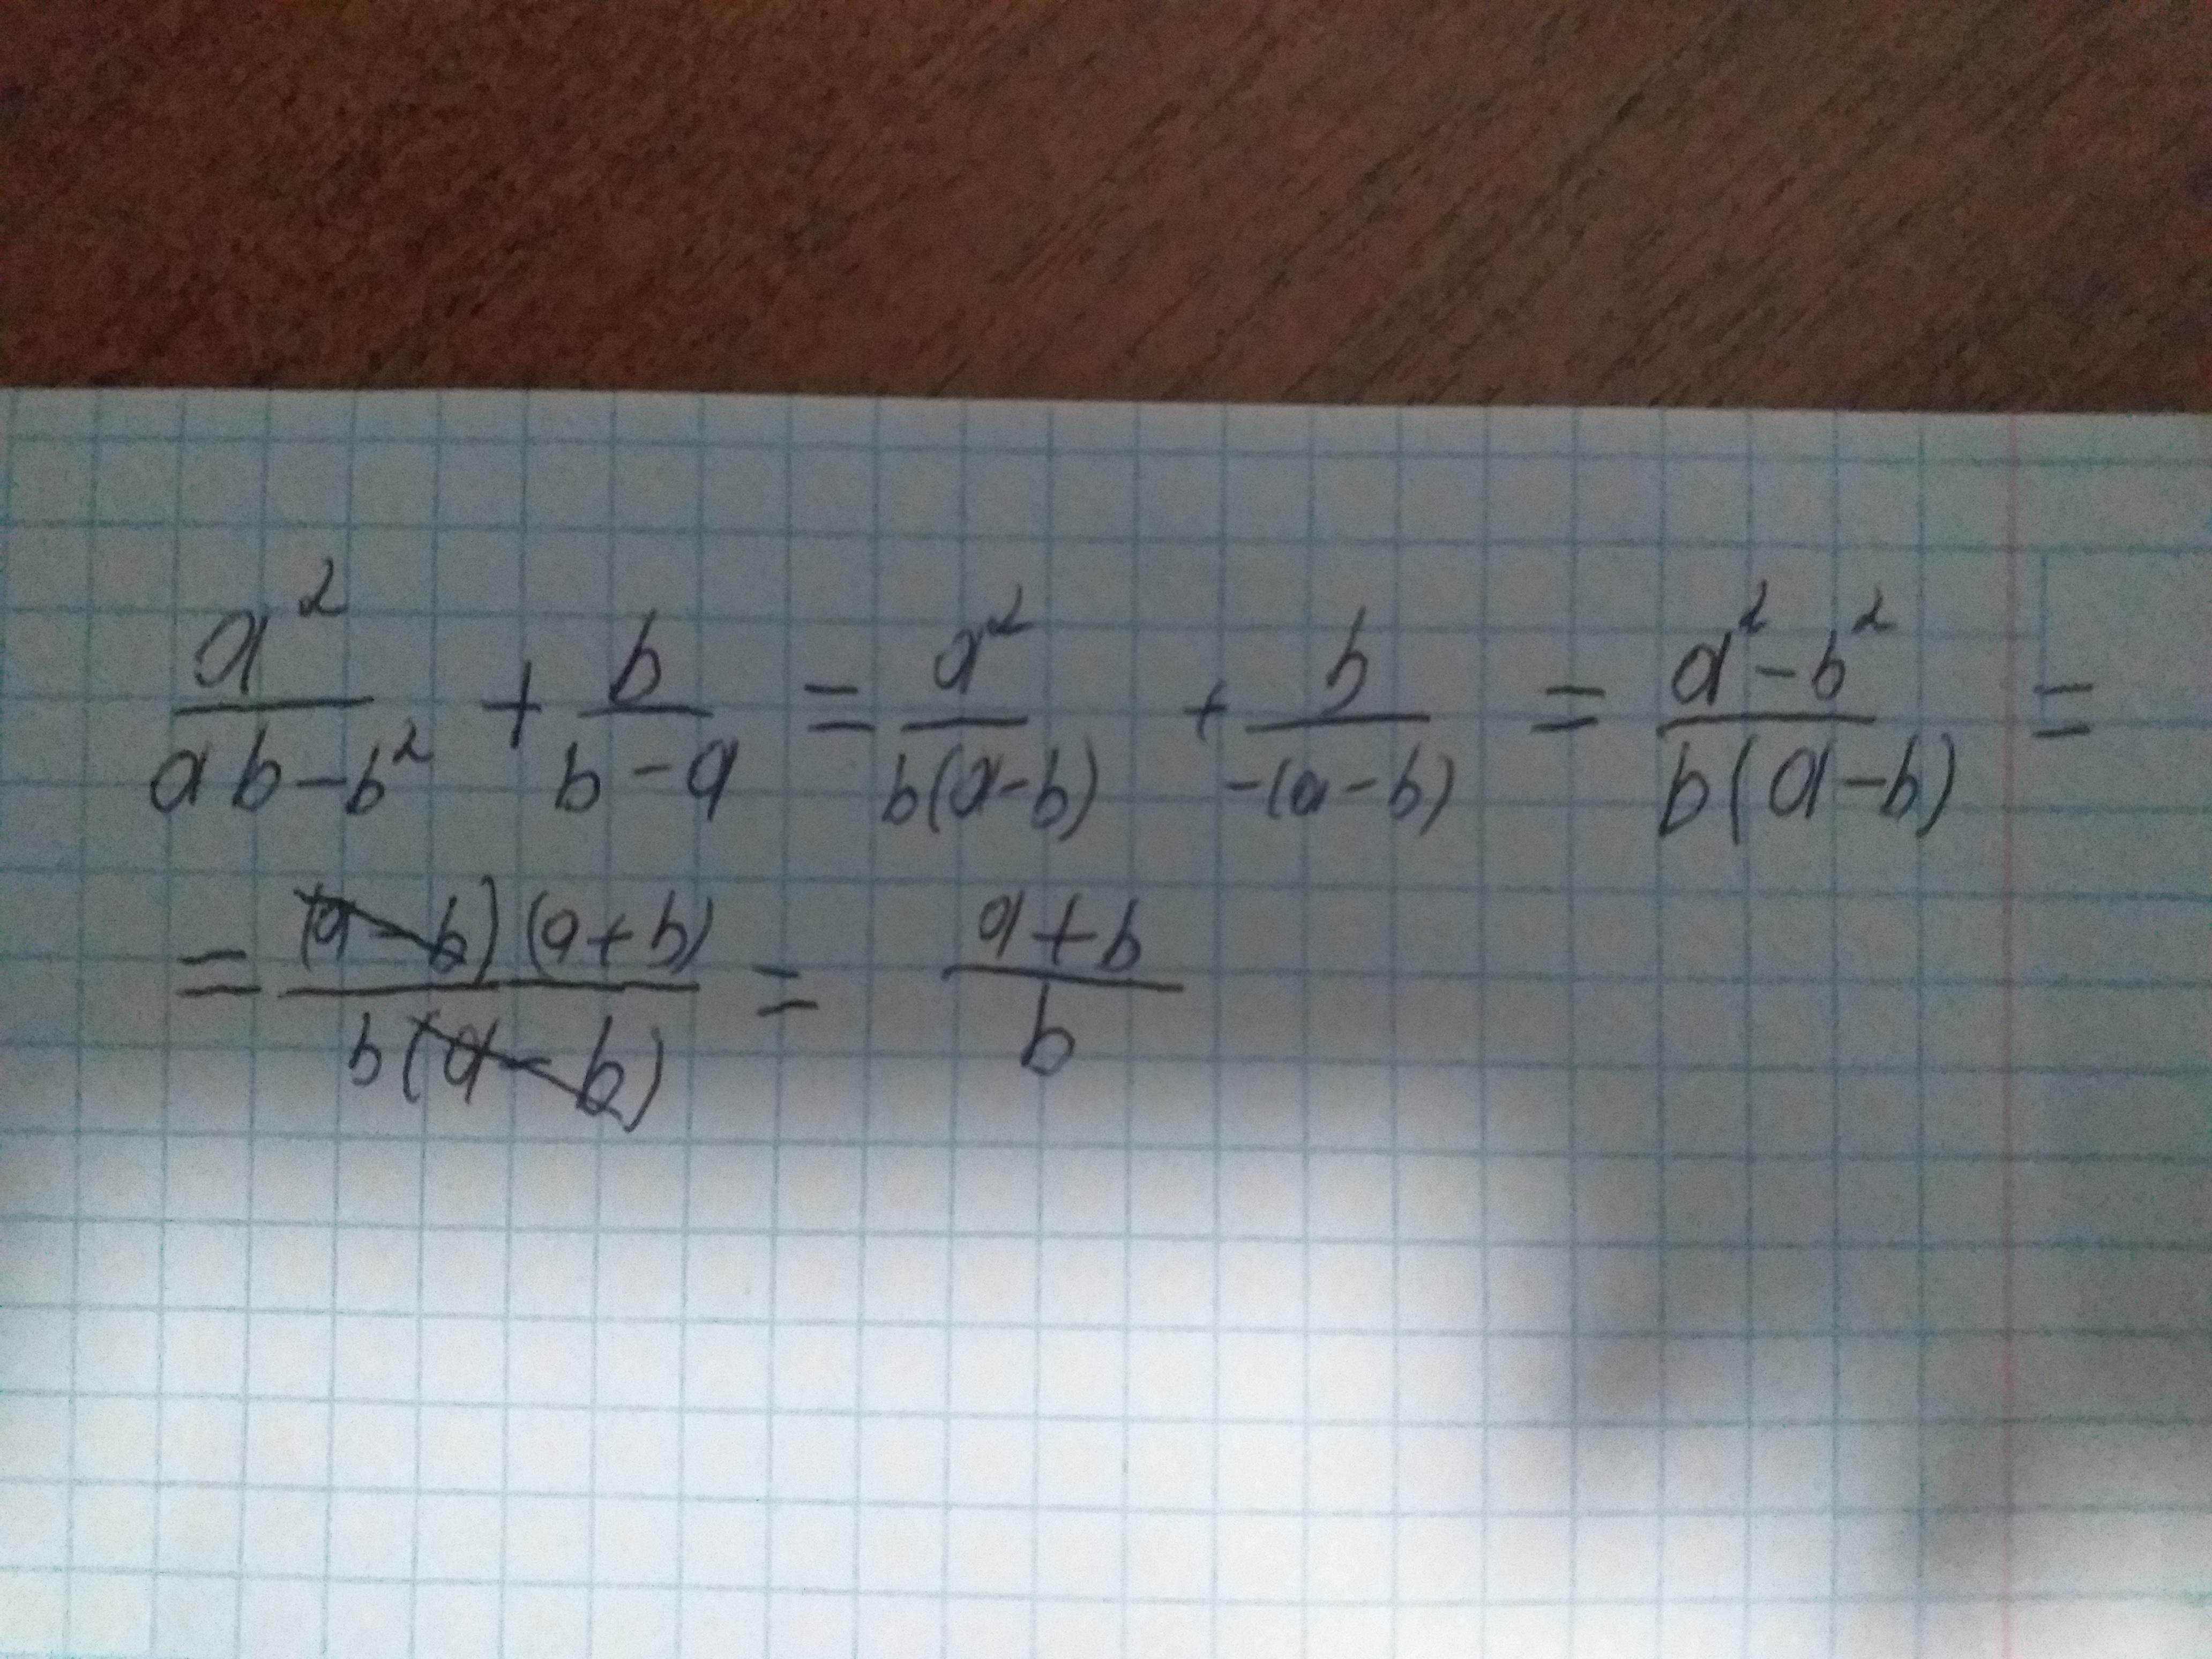 a²/(ab-b²) + b/(b-a) = a²/(b(a-b)) + b/(-(a-b)) = (a²-b²)/(b(a-b)) =
= ((a-b)(a+b))/(b(a-b)) = (a+b)/b